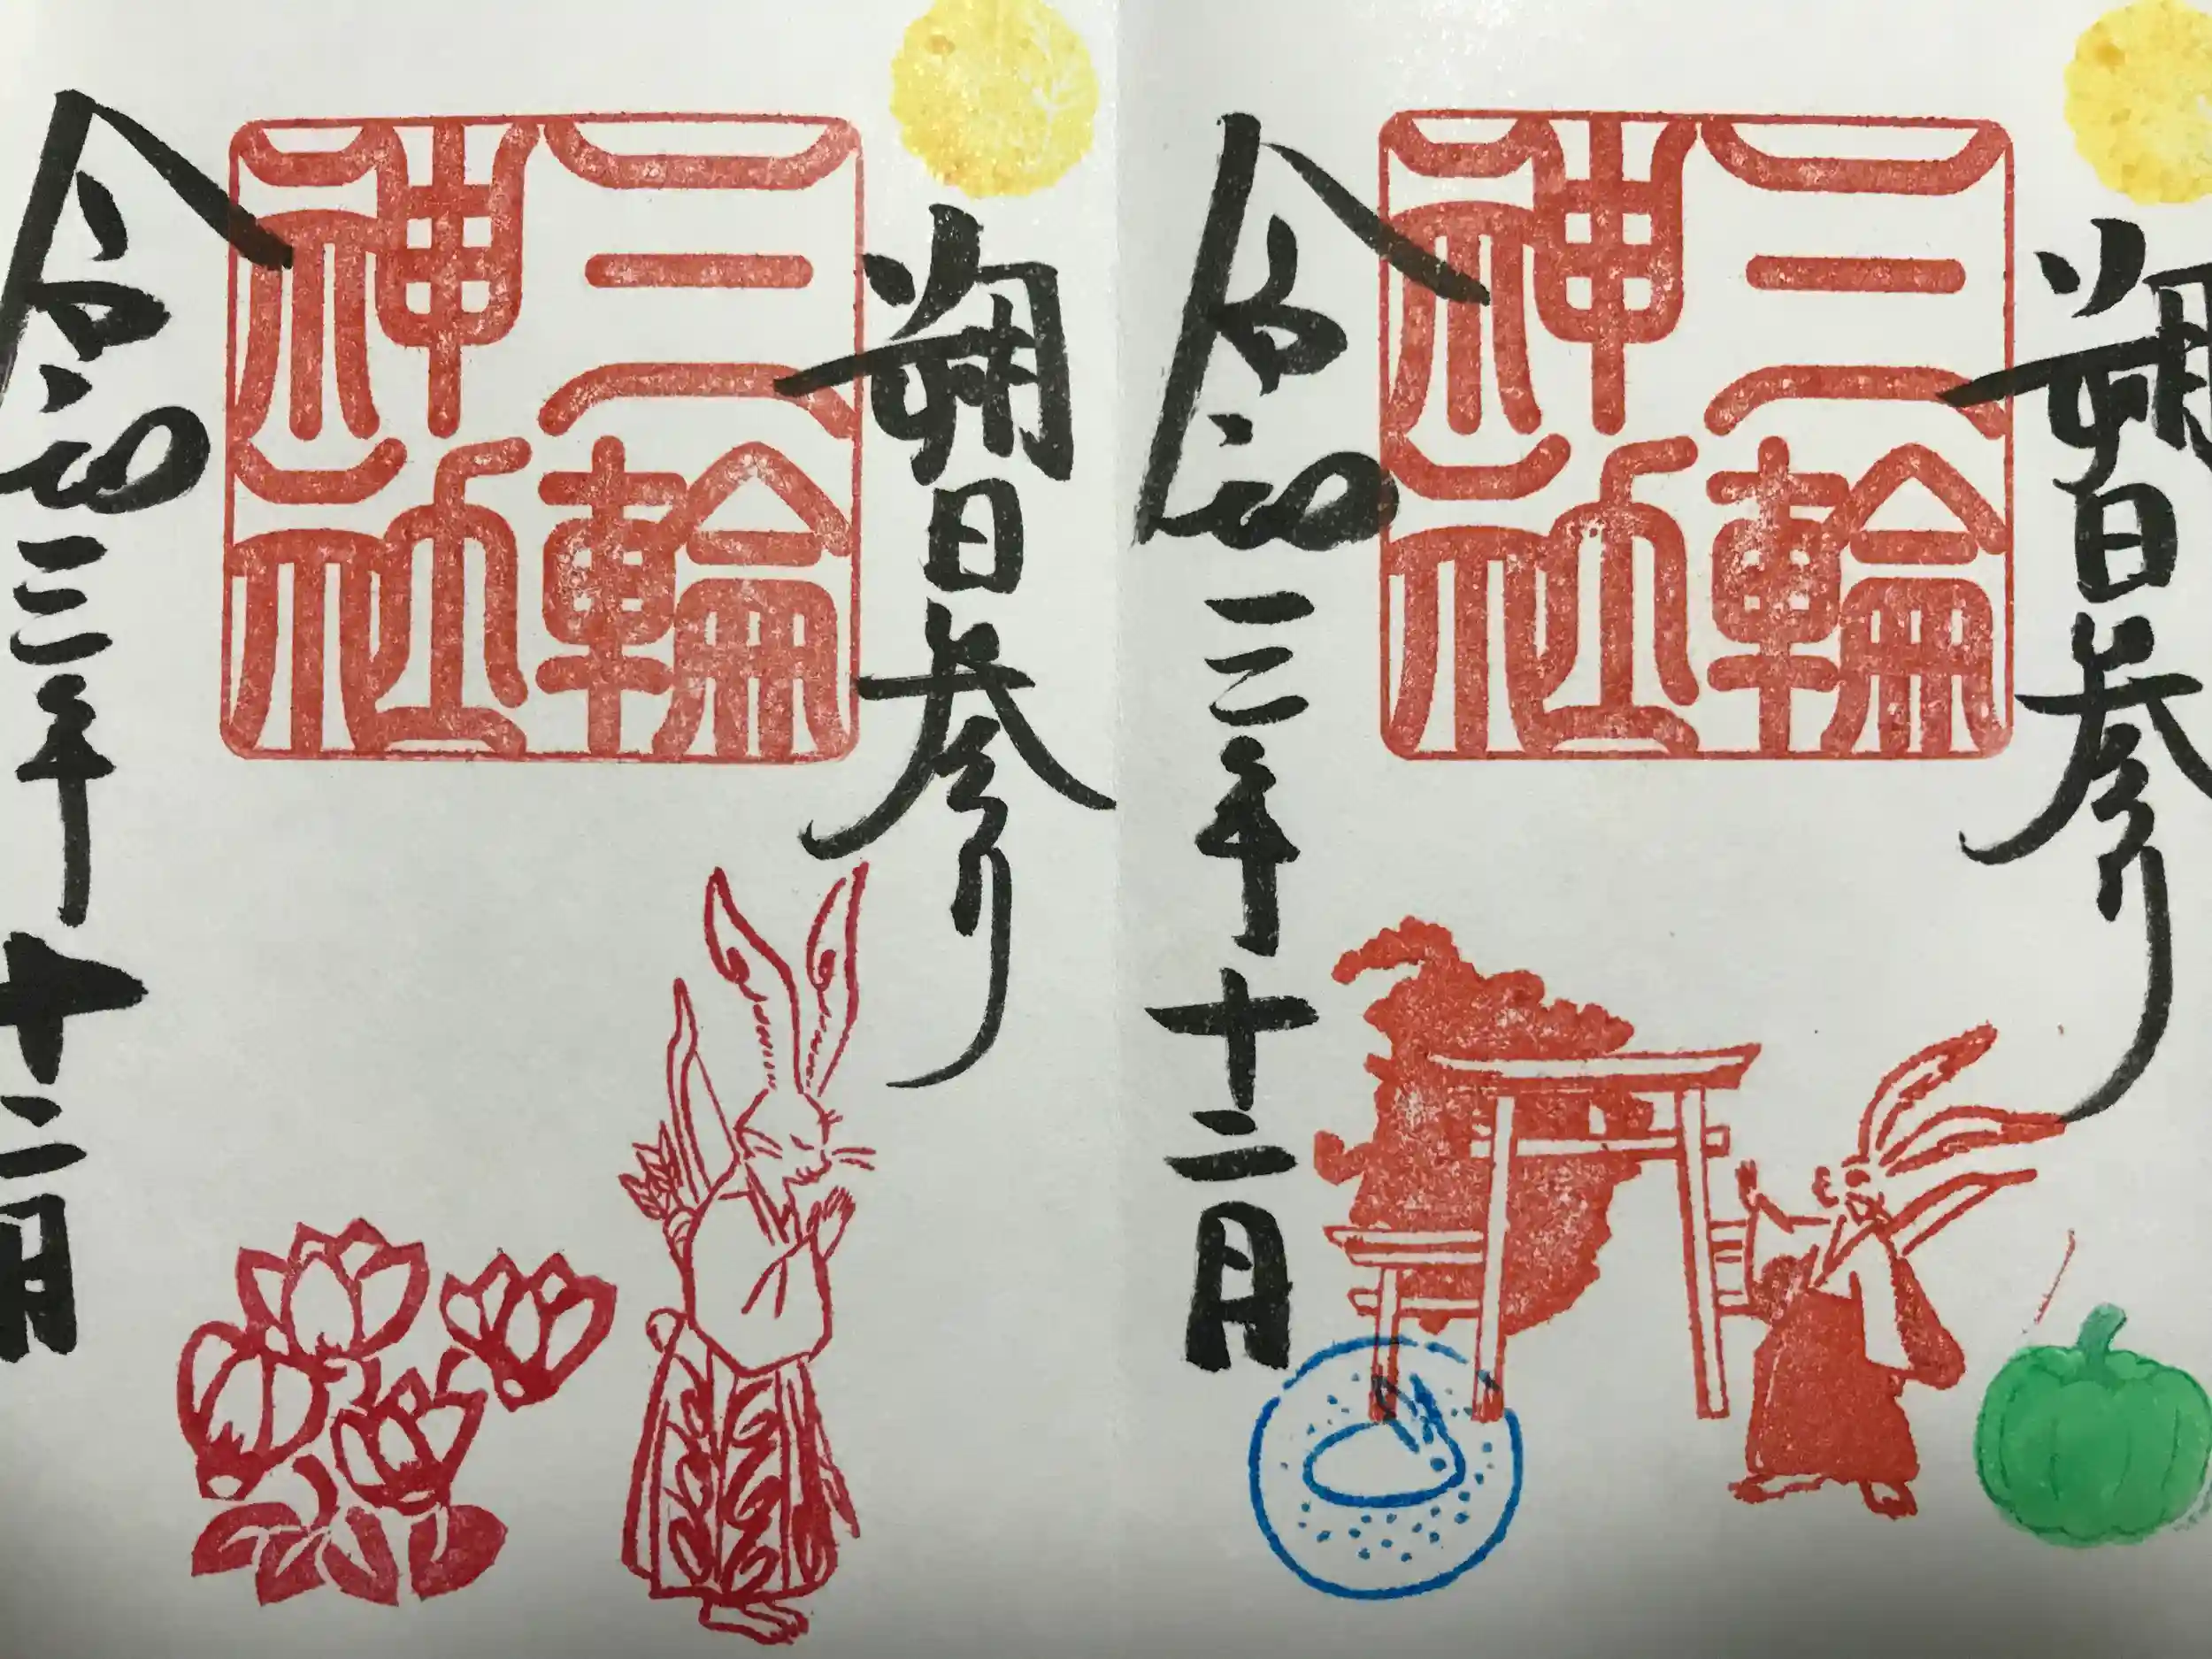 朔日参り
三輪
神社
令和三年十二月
朔日参り
三輪
神社
令和三年十二月